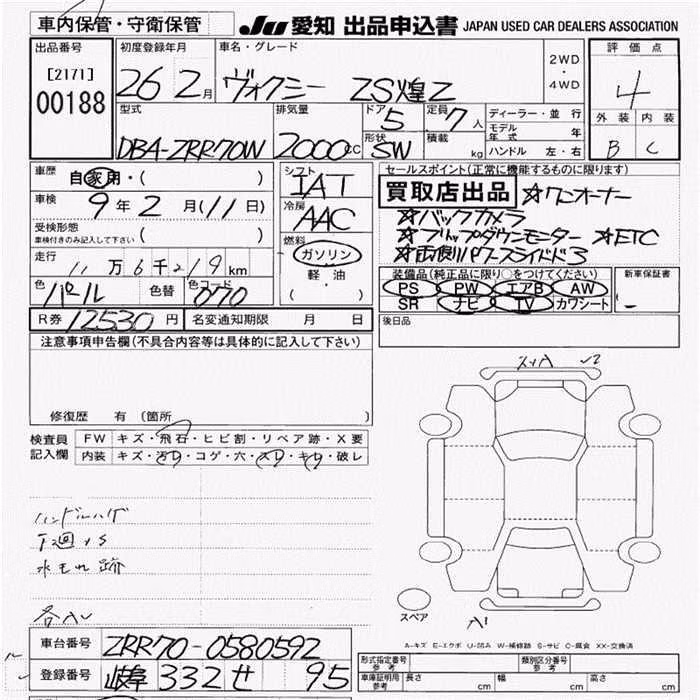 車内保管・守衛保管
JU 愛知 出品申込書 JAPAN USED CAR DEALERS ASSOCIATION
出品番号
[2171]
00188
初度登録年月
26 2月
車名・グレード
ヴォクシー ZS煌Z
2WD
・
4WD
評価点
4
外装 内装
B C
型式
DBA-ZRR70W
排気量
2000cc
ドア 5
形状 SW
定員 7人
積載 kg
ディーラー・並行
モデル年式 年
ハンドル 左・右
車歴 自家用・( )
車検 9年2月(11日)
受検形態
車検付きのみ記入して下さい ( )
走行
11万6千219km
色 パール 色替 色コード 070
シフト
IAT
冷房
AAC
燃料
ガソリン
軽油
( )
セールスポイント(正常に機能するものに限ります)
買取店出品 ☆ワンオーナー
☆バックカメラ
☆フリップダウンモニター ☆ETC
☆両側パワースライドドア
装備品(純正品に限り○をつけてください)
PS PW エアB AW
SR ナビ TV カワシート
新車保証書
-
R券 12530円 名変通知期限 月 日
後日品
注意事項申告欄(不具合内容等は具体的に記入して下さい)
修復歴 有 (箇所 )
検査員記入欄
FW キズ・飛石・ヒビ割・リペア跡・X要
内装 キズ・汚れ・コゲ・穴・スレ・キレ・破レ
ハンドルハゲ
下廻りS
水もれ跡
スリA
√2
スペア
A1
A-キズ E-エクボ U-凹み W-補修跡 S-サビ C-腐食 XX-交換済
車台番号 ZRR70-0580592
登録番号 岐阜 332 せ 95
形式指定番号 参考
類別区分番号 参考
車庫証明用 参考 長さ cm 幅 cm 高さ cm